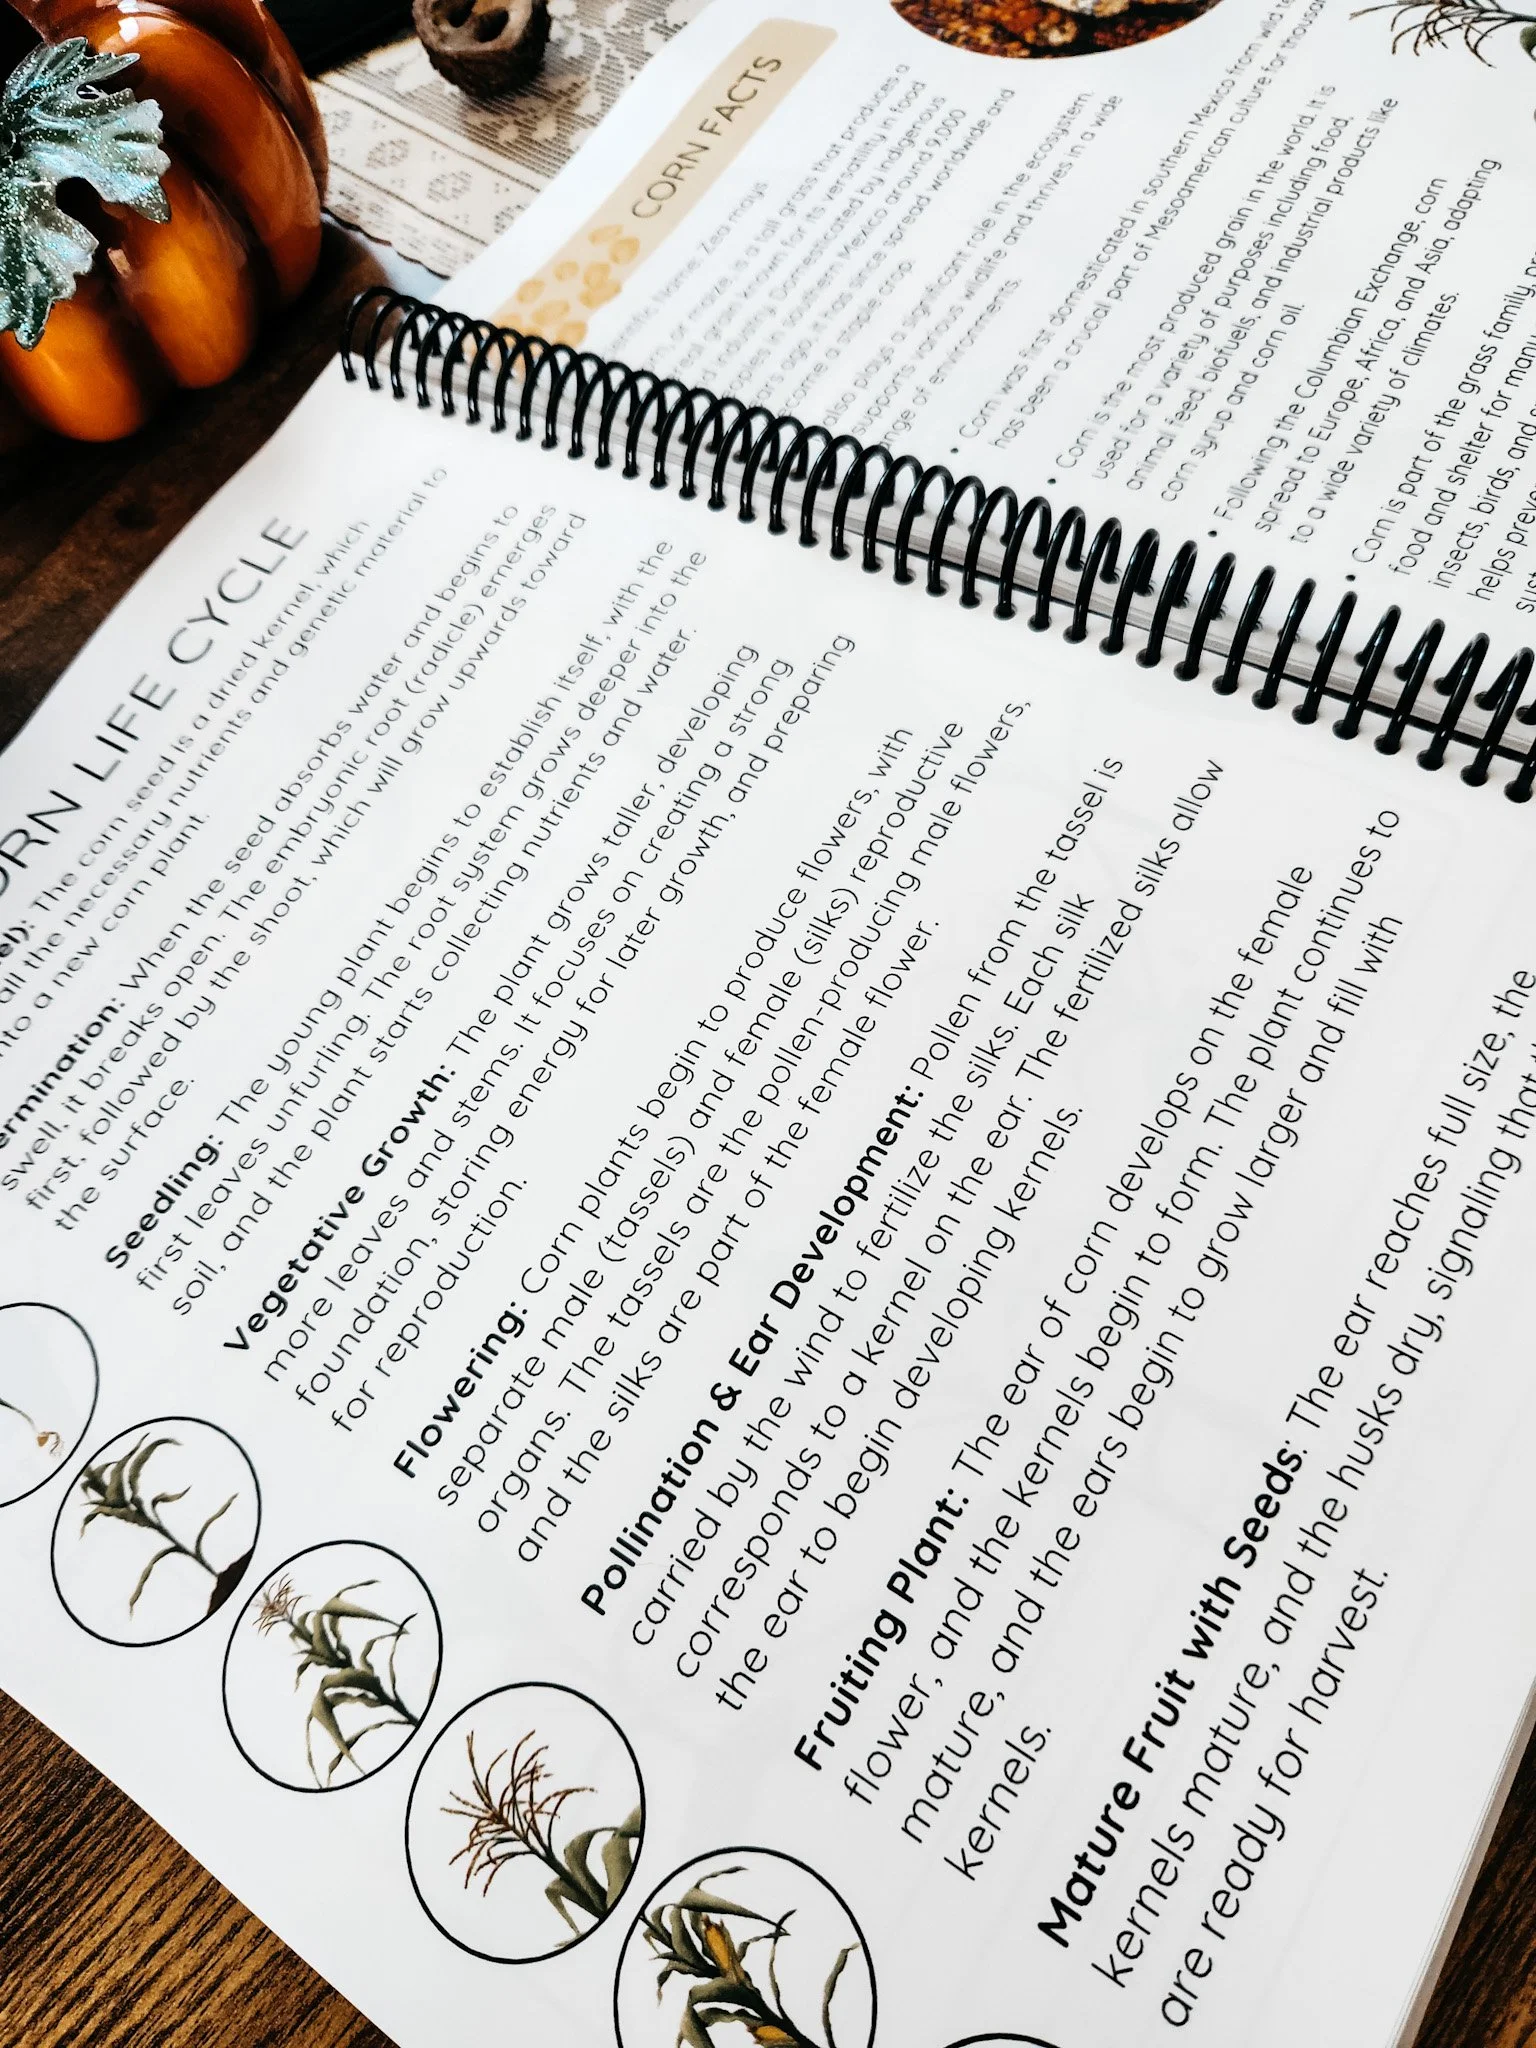 CORN FACTS
Name: Zea mays
or maize, is a tall grass that produces a
grain known for its versatility in food
industry. Domesticated by indigenous
peoples in southern Mexico around 9,000
years ago, it has since spread worldwide and
become a staple crop.
also plays a significant role in the ecosystem.
supports various wildlife and thrives in a wide
range of environments.
• Corn was first domesticated in southern Mexico from wild
has been a crucial part of Mesoamerican culture for
• Corn is the most produced grain in the world. It is
used for a variety of purposes including food,
animal feed, biofuels, and industrial products like
corn syrup and corn oil.
• Following the Columbian Exchange, corn
spread to Europe, Africa, and Asia, adapting
to a wide variety of climates.
• Corn is part of the grass family,
food and shelter for many
insects, birds, and
helps
LIFE CYCLE
The corn seed is a dried kernel, which
all the necessary nutrients and genetic material to
a new corn plant.
When the seed absorbs water and begins to
swell, it breaks open. The embryonic root (radicle) emerges
first, followed by the shoot, which will grow upwards toward
the surface.
Seedling: The young plant begins to establish itself, with the
first leaves unfurling. The root system grows deeper into the
soil, and the plant starts collecting nutrients and water.
Vegetative Growth: The plant grows taller, developing
more leaves and stems. It focuses on creating a strong
foundation, storing energy for later growth, and preparing
for reproduction.
Flowering: Corn plants begin to produce flowers, with
separate male (tassels) and female (silks) reproductive
organs. The tassels are the pollen-producing male flowers,
and the silks are part of the female flower.
Pollination & Ear Development: Pollen from the tassel is
carried by the wind to fertilize the silks. Each silk
corresponds to a kernel on the ear. The fertilized silks allow
the ear to begin developing kernels.
Fruiting Plant: The ear of corn develops on the female
flower, and the kernels begin to form. The plant continues to
mature, and the ears begin to grow larger and fill with
kernels.
Mature Fruit with Seeds: The ear reaches full size, the
kernels mature, and the husks dry, signaling that
are ready for harvest.